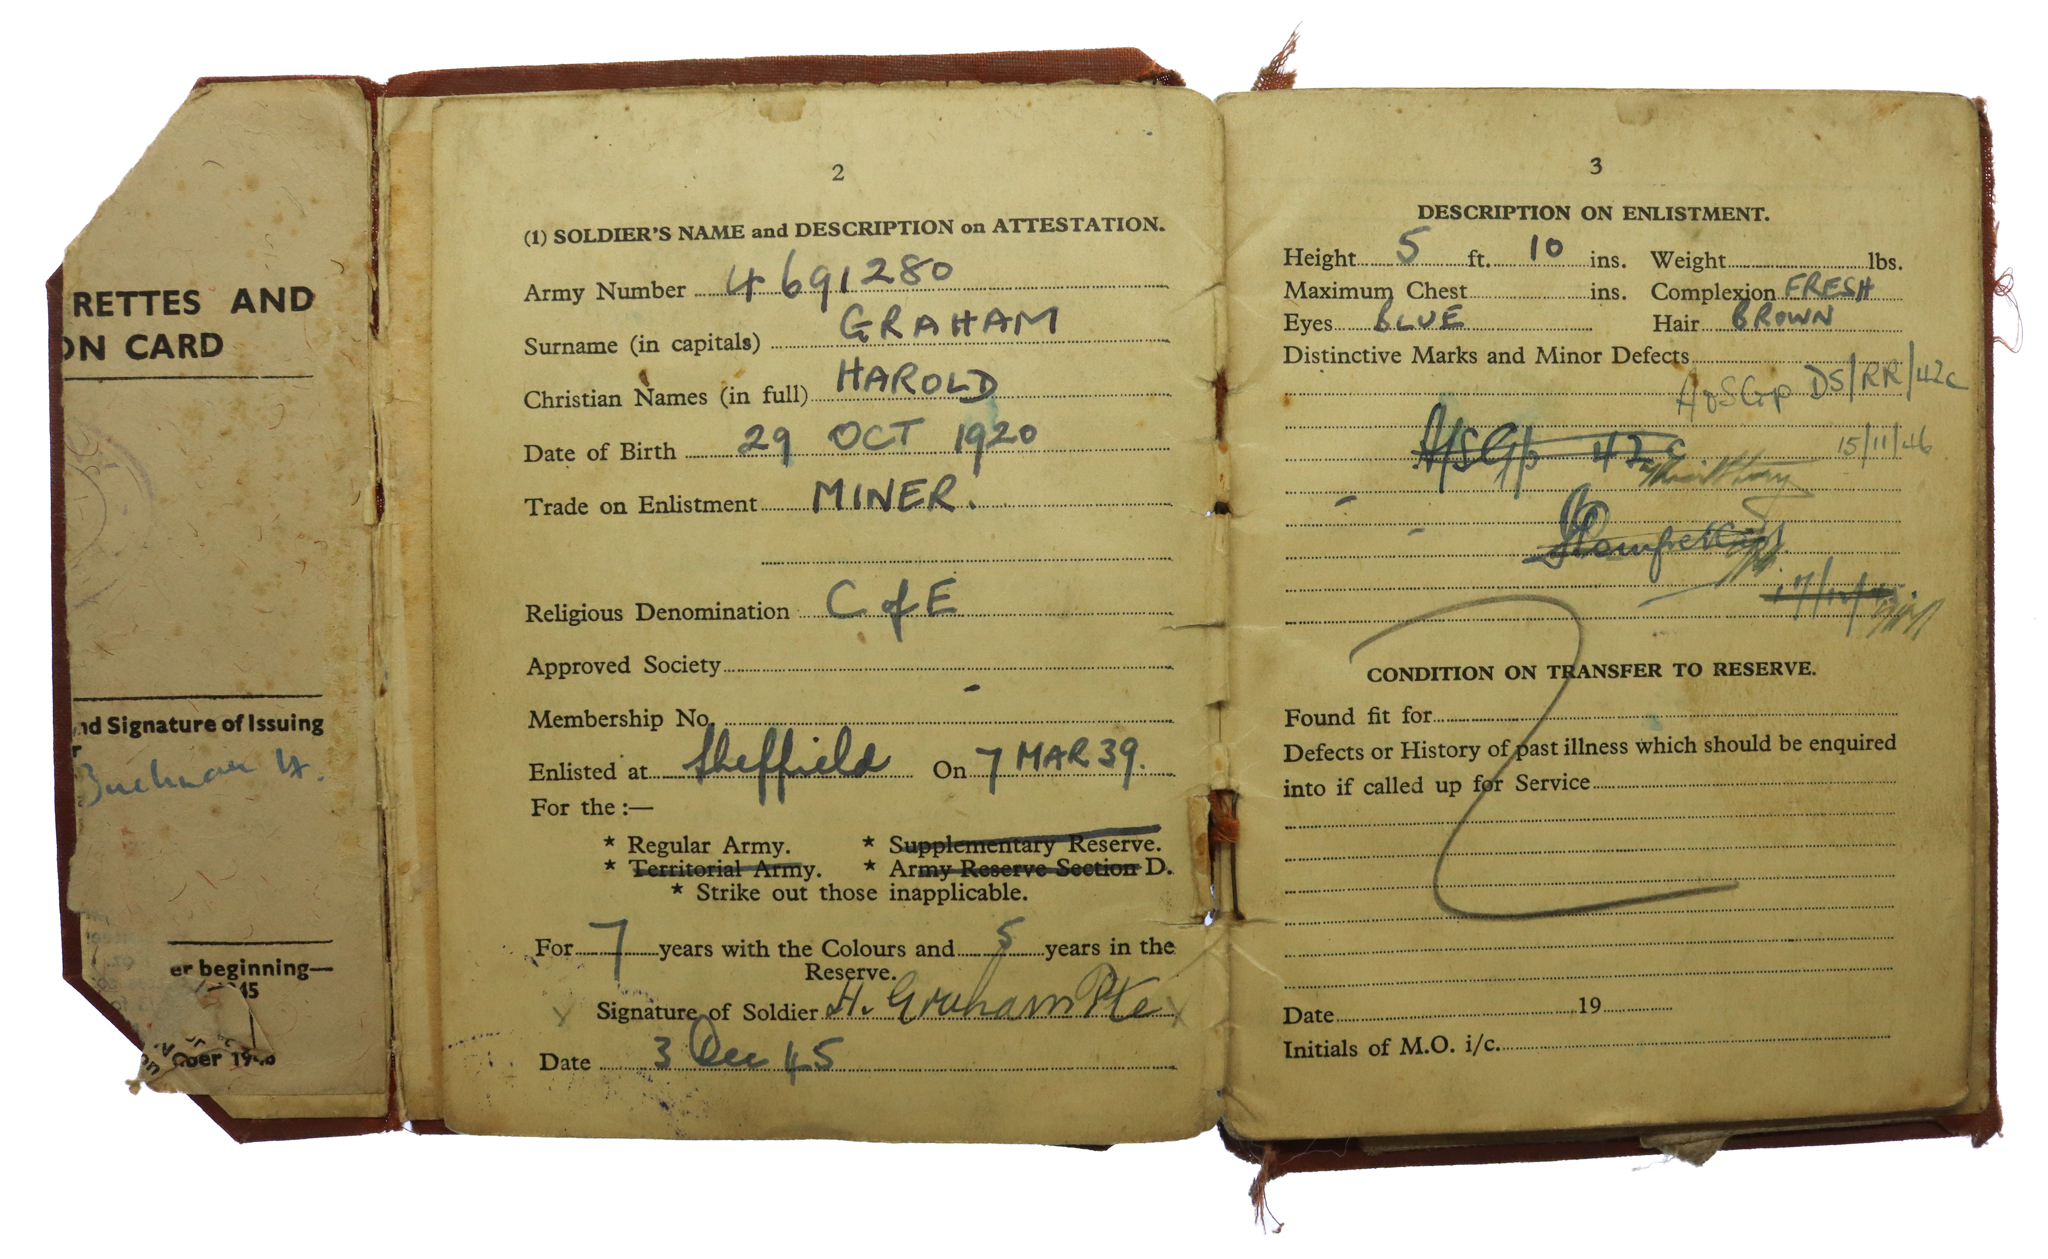 RETTES AND
ON CARD
nd Signature of Issuing
r
er beginning—
45
ober 194
2
(1) SOLDIER'S NAME and DESCRIPTION on ATTESTATION.
Army Number 4691280
Surname (in capitals) GRAHAM
Christian Names (in full) HAROLD
Date of Birth 29 OCT 1920
Trade on Enlistment MINER.
Religious Denomination C of E
Approved Society
Membership No.
Enlisted at Sheffield On 7 MAR 39.
For the :—
* Regular Army. * Supplementary Reserve.
* Territorial Army. * Army Reserve Section D.
* Strike out those inapplicable.
For 7 years with the Colours and 5 years in the
Reserve.
Signature of Soldier H. Graham Pte
Date 3 Dec 45
3
DESCRIPTION ON ENLISTMENT.
Height 5 ft. 10 ins. Weight lbs.
Maximum Chest ins. Complexion FRESH
Eyes BLUE Hair BROWN
Distinctive Marks and Minor Defects
DS/RR/42c
A/SGp 42c
15/11/46
CONDITION ON TRANSFER TO RESERVE.
Found fit for
Defects or History of past illness which should be enquired
into if called up for Service
Date 19
Initials of M.O. i/c.